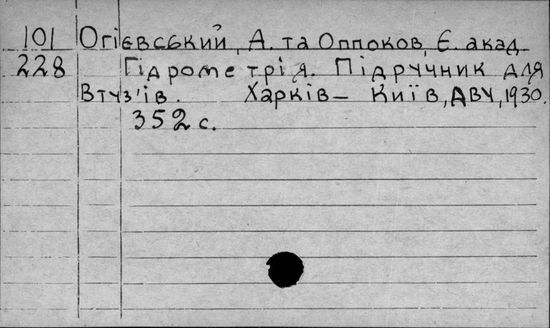 101 Огієвський, А. та Оппоков, Є. акад
228 Гідрометрія. Підручник для
Втуз'ів. Харків – Київ, ДВУ, 1930.
352 с.